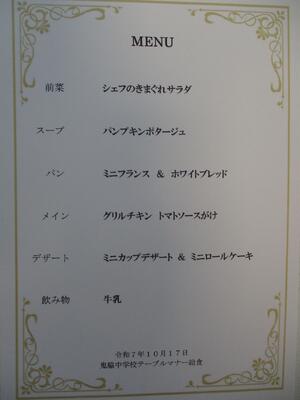 MENU
前菜 シェフのきまぐれサラダ
スープ パンプキンポタージュ
パン ミニフランス & ホワイトブレッド
メイン グリルチキン トマトソースがけ
デザート ミニカップデザート & ミニロールケーキ
飲み物 牛乳
令和7年10月17日
鬼脇中学校テーブルマナー給食